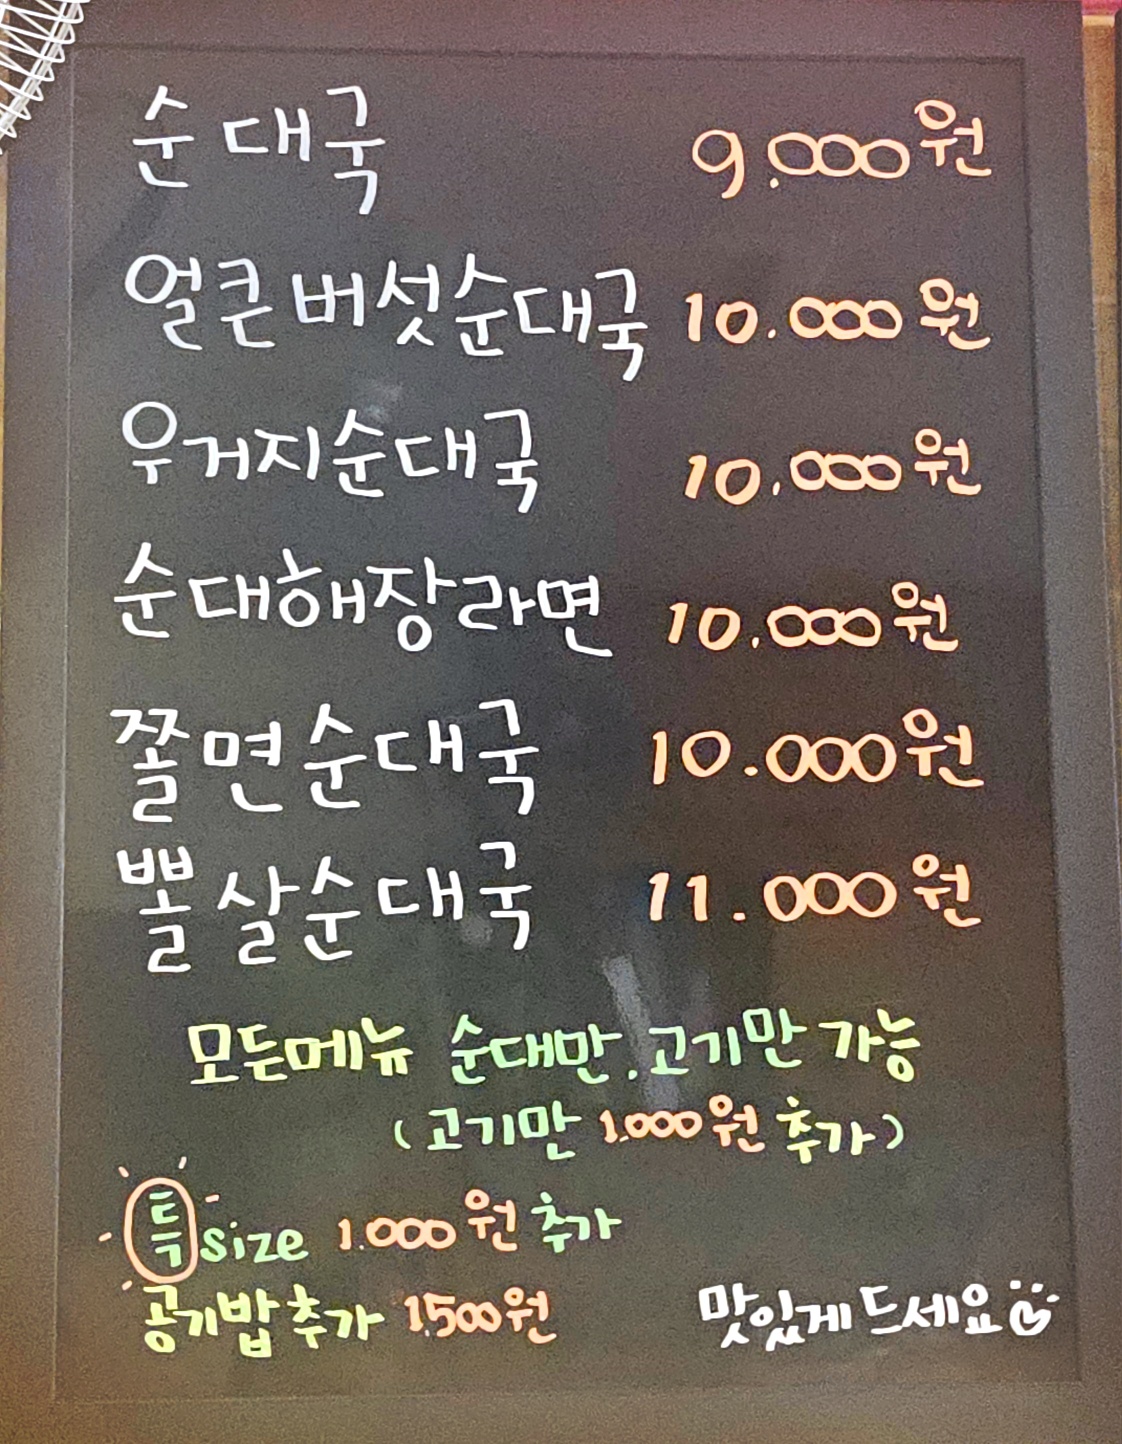 순대국 9.000원
얼큰버섯순대국 10.000원
우거지순대국 10.000원
순대해장라면 10.000원
쫄면순대국 10.000원
뽈살순대국 11.000원
모든메뉴 순대만.고기만 가능
(고기만 1.000원 추가)
특size 1.000원 추가
공기밥추가 1.500원
맛있게 드세요